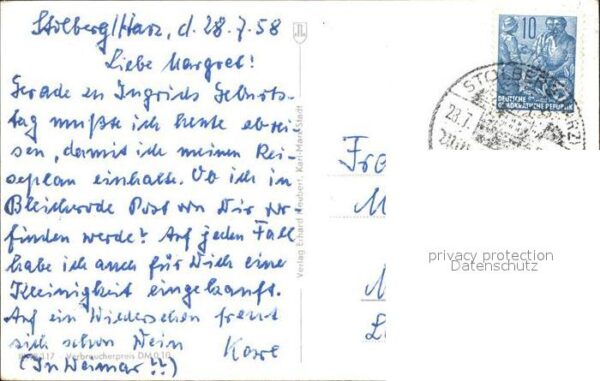 Stolberg/Harz, d. 28.7.58
Liebe Margret!
Gerade an Ingrids Geburts-
tag mußte ich heute abrei-
sen, damit ich meinen Rei-
seplan einhalte. Ob ich in
Bleicherode Post von Dir vor-
finden werde? Auf jeden Fall
habe ich auch für Dich eine
Kleinigkeit eingekauft.
Auf ein Wiedersehen freut
sich schon Dein
(In Weimar!!)
117 - Verbraucherpreis DM 0,10
Verlag Erhard Neubert, Karl-Marx-Stadt
10
DEUTSCHE
DEMOKRATISCHE REPUBLIK
STOLBERG
privacy protection
Datenschutz